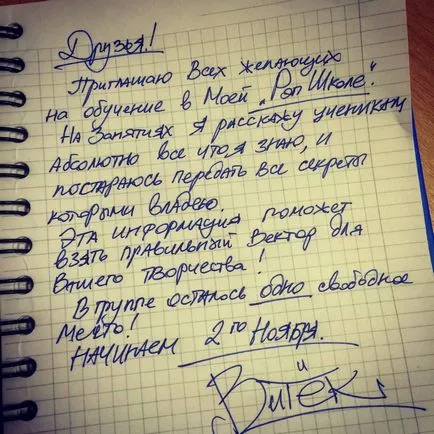 Друзья!
Приглашаю Всех желающих
на обучение в Моей „Рэп Школе“.
На Занятиях Я расскажу ученикам
Абсолютно все что я знаю, и
постараюсь передать все секреты
которыми владею.
Эта информация поможет
взять правильный Вектор для
Вашего творчества!
В группе осталось одно свободное
место!
Начинаем 2го Ноября.
Витёк